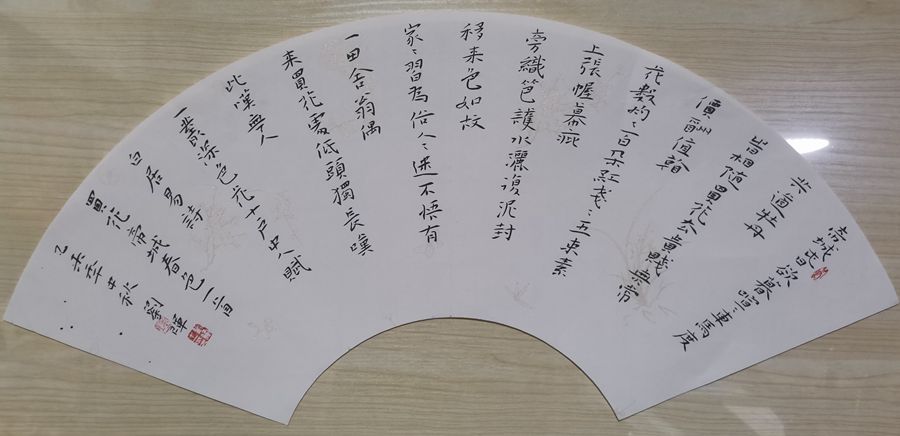 帝城春欲暮喧〻車馬度
共道牡丹
時相隨買花去貴賤無常
價酬值看
花數灼〻百朵紅戔〻五束素
上張幄幕庇
旁織笆護水灑復泥封
移来色如故
家〻習為俗人〻迷不悟有
一田舍翁偶
来買花處低頭獨長嘆
此嘆無人
一叢深色花十戶中人賦
白居易詩
買花帝城春色一首
乙未年中秋劉